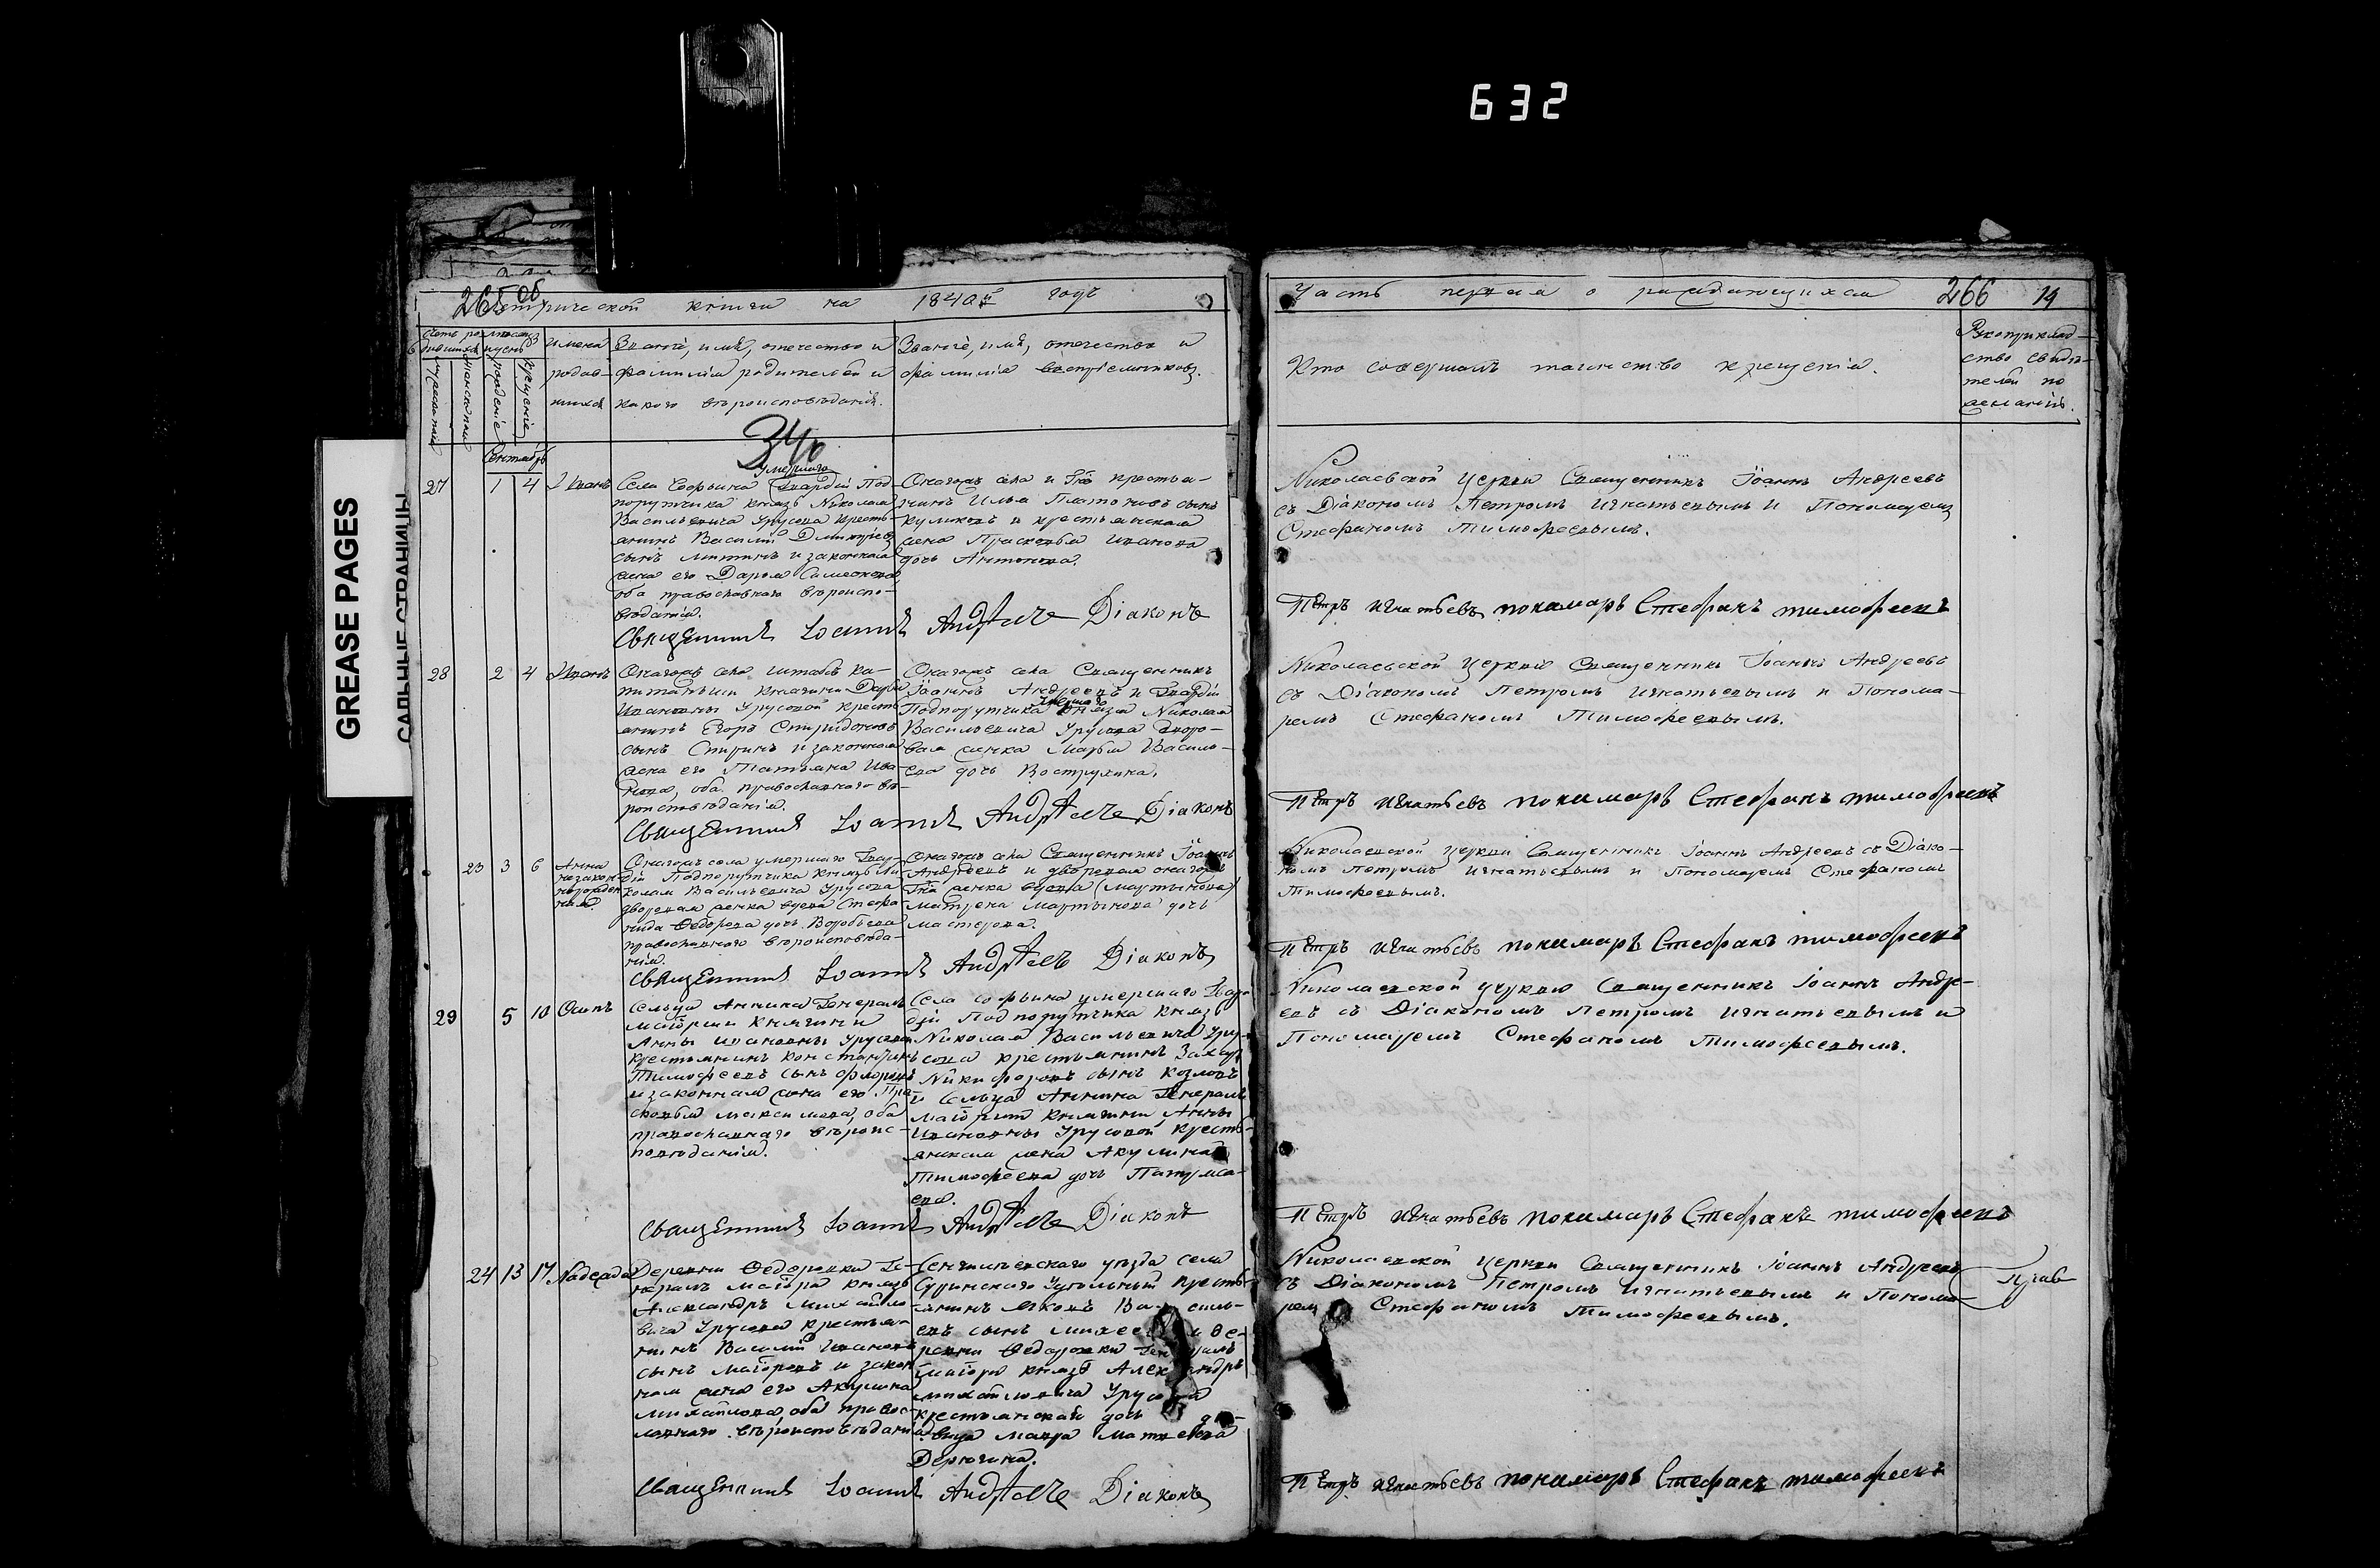 632
GREASE PAGES
САЛЬНЫЕ СТРАНИЦЫ
265 об
Метрической книги на 1840й годъ
Имена родившихся
Званіе, имя, отечество и фамилія родителей и какого вѣроисповѣданія.
Званіе, имя, отечество и фамилія воспріемниковъ.
Сентябрь
346
27
1 4
Иванъ
Села Софьина умершаго Гвардіи Под-
порутчика князь Николая
Васильевича Урусова кресть-
янинъ Василій Дмитріевъ
сынъ Митинъ и законная
жена его Дарья Симеонова
оба православнаго вѣроиспо-
вѣданія.
Онагожъ села и Гна крестья-
нинъ Илья Платоновъ сынъ
Куликовъ и крестьянская
жена Прасковья Иванова
дочь Антонова.
Священникъ Іоаннъ Андреевъ Діаконъ
28
2 4
Иванъ
Онагожъ села штабсъ ка-
питаньши княгини Дарьи
Ивановны Урусовой кресть-
янинъ Егоръ Спиридоновъ
сынъ Спиринъ и законная
жена его Татьяна Ива-
нова, оба православнаго вѣ-
роисповѣданія.
Онагожъ села Священникъ
Іоаннъ Андреевъ и Гвардіи
Подпорутчика умершаго князя Николая
Васильевича Урусова дворо-
вая женка Марья Василь-
ева дочь Вострухина.
Священникъ Іоаннъ Андреевъ Діаконъ
23 3 6
Анна
незакон-
норожден-
ная
Онагожъ села умершаго Гвар-
діи Подпорутчика князь Ни-
колая Васильевича Урусова
дворовая женка вдова Стефа-
нида Ѳедорова дочь Воробьева
православнаго вѣроисповѣда-
нія.
Онагожъ села Священникъ Іоаннъ
Андреевъ и дворовая онагожъ
Гна женка вдова (Мартынова)
Матрена Мартынова дочь
Мастерова.
Священникъ Іоаннъ Андреевъ Діаконъ
29
5 10
Осипъ
Сельца Аннина Генералъ
маіорши княгини
Анны Ивановны Урусовой
крестьянинъ Константинъ
Тимофеевъ сынъ Фроловъ
и законная жена его Пра-
сковья Максимова, оба
православнаго вѣроис-
повѣданія.
Села Софьина умершаго Гвар-
діи Подпорутчика князь
Николая Васильевича Уру-
сова крестьянинъ Захаръ
Никифоровъ сынъ Козловъ
и сельца Аннина Генералъ
маіорши княгини Анны
Ивановны Урусовой кресть-
янская жена Акулина
Тимофеева дочь
Священникъ Іоаннъ Андреевъ Діаконъ
24 13 17
Надежда
Деревни Ѳедоровки Ге-
нералъ маіора князь
Александръ Михайло-
вича Урусова крестья-
нинъ Василій Ивановъ
сынъ Маіоровъ и закон-
ная жена его Акулина
Михайлова, оба правос-
лавнаго вѣроисповѣданія
уѣзда села
Удѣльный кресть-
янинъ Яковъ Василь-
евъ сынъ и де-
ревни Ѳедоровки Генералъ
маіора князь Александръ
Михайловича Урусова
крестьянская дочь дѣ-
вица Мавра Матвеева
Дерюгина.
Священникъ Іоаннъ Андреевъ Діаконъ
Часть первая о раждающихся 266 14
Кто совершалъ таинство крещенія.
Рукоприклад-
ство свидѣ-
телей по
желанію.
Николаевской Церкви Священникъ Іоаннъ Андреевъ
съ Діакономъ Петромъ Игнатьевымъ и Пономаремъ
Стефаномъ Тимофеевымъ.
Петръ Игнатьевъ пономарь Стефанъ Тимофеевъ
Николаевской Церкви Священникъ Іоаннъ Андреевъ
съ Діакономъ Петромъ Игнатьевымъ и Понома-
ремъ Стефаномъ Тимофеевымъ.
Петръ Игнатьевъ пономарь Стефанъ Тимофеевъ
Николаевской Церкви Священникъ Іоаннъ Андреевъ съ Діако-
номъ Петромъ Игнатьевымъ и Пономаремъ Стефаномъ
Тимофеевымъ.
Петръ Игнатьевъ пономарь Стефанъ Тимофеевъ
Николаевской Церкви Священникъ Іоаннъ Андре-
евъ съ Діакономъ Петромъ Игнатьевымъ и
Пономаремъ Стефаномъ Тимофеевымъ.
Петръ Игнатьевъ пономарь Стефанъ Тимофеевъ
Николаевской Церкви Священникъ Іоаннъ Андреевъ
съ Діакономъ Петромъ Игнатьевымъ и Понома-
ремъ Стефаномъ Тимофеевымъ.
Петръ Игнатьевъ пономарь Стефанъ Тимофеевъ